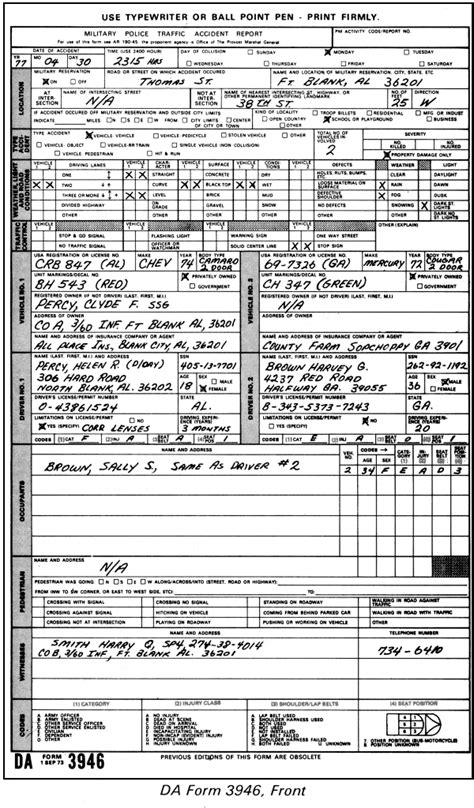 USE TYPEWRITER OR BALL POINT PEN - PRINT FIRMLY.
MILITARY POLICE TRAFFIC ACCIDENT REPORT
For use of this form see AR 190-45 the proponent agency is Office of The Provost Marshal General
PM ACTIVITY CODE/REPORT NO.
DATE OF ACCIDENT TIME (USE 2400 HOUR) DAY OF COLLISION SUNDAY MONDAY TUESDAY
YR 77 MO 04 DAY 30 2315 HRS WEDNESDAY THURSDAY FRIDAY SATURDAY
LOCATION
MILITARY RESERVATION ROAD OR STREET ON WHICH ACCIDENT OCCURED NAME AND LOCATION OF MILITARY RESERVATION, CITY, STATE, ETC
ON OFF THOMAS ST. FT. BLANK AL, 36201
AT INTER-SECTION NAME OF INTERSECTING STREET N/A NOT AT INTER-SECTION NAME OF NEAREST INTERSECTING ST, HIGHWAY, OR OTHER PERMANENT IDENTIFYING LANDMARK 38TH ST NO. OF FEET 25 DIRECTION W
IF ACCIDENT OCCURED OFF MILITARY RESERVATION AND OUTSIDE CITY LIMITS KIND OF LOCATION TROOP BILLETS RESIDENTIAL MFG OR INDUST
INDICATE MILES N S E W FROM CITY LIMITS CENTER OF CITY OR TOWN OPEN COUNTRY SCHOOL OR PLAYGROUND BUSINESS OTHER
TYPE ACCIDENT VEHICLE VEHICLE VEHICLE PEDICYCLE STOLEN VEHICLE OTHER TOTAL NO. OF VEHICLES INVOLVED 2 SEVERITY
VEHICLE OBJECT VEHICLE-RR TRAIN SINGLE VEHICLE (NON COLLISION) NO. KILLED NO. INJURED
VEHICLE PEDESTRIAN HIT & RUN PROPERTY DAMAGE ONLY
WEATHER, LIGHT AND ROAD CONDITIONS
DRIVING LANES CHARACTER SURFACE CONDITIONS DEFECTS WEATHER LIGHT
ONE STRAIGHT CONCRETE DRY HOLES, RUTS, BUMPS, CLEAR DAY
TWO CURVE BLACK TOP WET LOOSE MATERIAL ON SURFACE RAIN DAWN
THREE OR MORE LEVEL BRICK MUD DEFECTIVE SHOULDER FOG DUSK
DIVIDED HIGHWAY ON GRADE GRAVEL SNOW NO DEFECTS SNOWING DARK ST. LIGHTS
OTHER OTHER OTHER OTHER OTHER OTHER DARK NO ST LIGHTS
TRAFFIC CONTROL
STOP & GO SIGNAL FLASHING LIGHT WARNING SIGN ONE WAY STREET OTHER (EXPLAIN)
NO TRAFFIC SIGNAL OFFICER OR WATCHMAN SOLID CENTER LINE STOP SIGN
VEHICLE NO. 1
USA REGISTRATION OR LICENSE NO MAKE YEAR BODY TYPE
CRB 847 (AL) CHEV 74 CAMARO 2 DOOR
UNIT MARKINGS/DECAL NO. PRIVATELY OWNED
BH 543 (RED) GOVERNMENT
REGISTERED OWNER (IF NOT DRIVER) (LAST, FIRST, M.I.)
PERCY, CLYDE F. SSG
ADDRESS OF OWNER
CO A, 3/60 INF FT BLANK AL, 36201
NAME AND ADDRESS OF INSURANCE COMPANY OR AGENT
ALL PLACE INS, BLANK CITY, AL, 36201
VEHICLE NO. 2
USA REGISTRATION OR LICENSE NO. MAKE YEAR BODY TYPE
69-7326 (GA) MERCURY 72 COUGAR 2 DOOR
UNIT MARKINGS/DECAL NO. PRIVATELY OWNED
CH 347 (GREEN) GOVERNMENT
REGISTERED OWNER (IF NOT DRIVER) (LAST, FIRST, M.I.)
N/A
ADDRESS OF OWNER
NAME AND ADDRESS OF INSURANCE COMPANY OR AGENT
COUNTY FARM SOPCHOPPY GA 3901
DRIVER NO. 1
NAME (LAST, FIRST, M.I.) AND ADDRESS SSN
PERCY, HELEN R (D/DAY) 405-13-7701
306 HARD ROAD AGE SEX MALE
NORTH BLANK AL. 36202 18 FEMALE
DRIVER'S LICENSE/PERMIT NUMBER STATE
0-43861524 AL.
LIMITATIONS ON LICENSE/PERMIT NO DRIVING EXPERIENCE (YEARS)
YES (SPECIFY) CORR LENSES 3 MONTHS
CODES (1) CAT F (2) INJ A (3) SEAT A (4) SEAT 1
DRIVER NO. 2
NAME (LAST, FIRST, M.I.) AND ADDRESS SSN
BROWN HARVEY G. 262-92-1192
4237 RED ROAD AGE SEX MALE
HALFWAY GA. 39055 36 FEMALE
DRIVER'S LICENSE/PERMIT NUMBER STATE
B-343-5373-7243 GA.
LIMITATIONS ON LICENSE/PERMIT NO DRIVING EXPERIENCE (YEARS)
YES (SPECIFY) 20
CODES (1) CAT E (2) INJ A (3) SEAT D (4) SEAT 1
OCCUPANTS
NAME AND ADDRESS VEH. NO. CODES AGE SEX CATEGORY (1) INJURY (2) SEAT BELT (3) SEAT POSITION (4)
BROWN, SALLY S, SAME AS DRIVER #2 2 34 F E A D 3
PEDESTRIAN
NAME AND ADDRESS
N/A
PEDESTRIAN WAS GOING N S E W ALONG/ACROSS/INTO (STREET, ROAD OR HIGHWAY):
FROM (NW TO SW CORNER, OR EAST TO WEST SIDE, ETC): TO:
CROSSING WITH SIGNAL CROSSING NO SIGNAL STANDING ON ROADWAY WALKING IN ROAD AGAINST TRAFFIC
CROSSING AGAINST SIGNAL HITCHING ON VEHICLE COMING FROM BEHIND PARKED CAR WALKING IN ROAD WITH TRAFFIC
CROSSING NOT AT INTERSECTION PLAYING ON ROADWAY PUSHING OR WORKING ON VEHICLE OTHER
WITNESSES
NAME AND ADDRESS TELEPHONE NUMBER
SMITH HARRY Q, SP4, 274-38-4014
CO B, 3/60 INF, FT. BLANK AL. 36201 734-6410
CODES
(1) CATEGORY (2) INJURY CLASS (3) SHOULDER/LAP BELTS (4) SEAT POSITION
A ARMY OFFICER A NO INJURY A LAP BELT USED
B ARMY ENLISTED B DEAD AT SCENE B SHOULDER HARNESS USED
C OTHER SERVICE OFFICER C DEAD ON ARRIVAL C BOTH USED
D OTHER SERVICE ENLISTED D DIED IN HOSPITAL D NOT USED
E CIVILIAN E INCAPACITATING INJURY E NOT INSTALLED
F DEPENDENT F NON-INCAP (EVIDENT) INJURY F LAP BELT FAILED
G OTHER G POSSIBLE INJURY G SHOULDER HARNESS FAILED 7 OTHER POSITION (BUS-MOTORCYCLE)
H INJURY UNKNOWN H BOTH FAILED U UNKNOWN 8 POSITION UNKNOWN
DA FORM 1 SEP 73 3946 PREVIOUS EDITIONS OF THIS FORM ARE OBSOLETE
DA Form 3946, Front